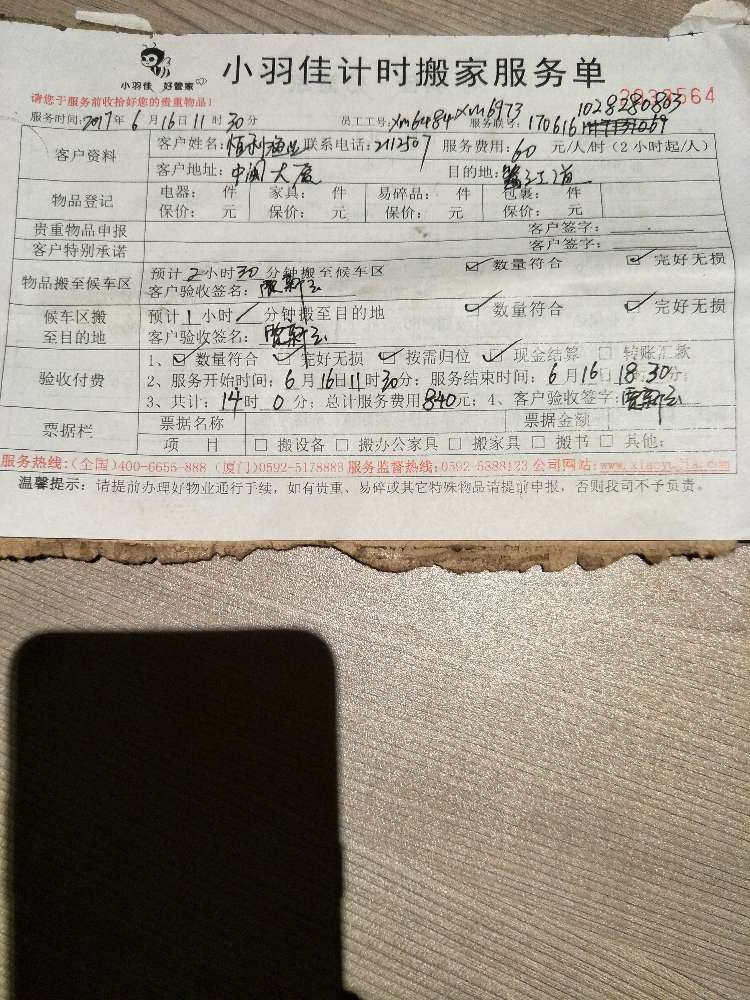 小羽佳 好管家
小羽佳计时搬家服务单
请您于服务前收拾好您的贵重物品!
服务时间:2017年6月16日11时30分 员工工号:xm6484 xm6973 服务联号:170616 1028280803
客户资料 客户姓名:恒利渔业 联系电话:2112507 服务费用:60元/人/时(2小时起/人)
客户地址:中闽大厦 目的地:
物品登记 电器: 件 家具: 件 易碎品: 件 包裹: 件
保价: 元 保价: 元 保价: 元 保价: 元
贵重物品申报 客户签字:
客户特别承诺 客户签字:
物品搬至候车区 预计2小时30分钟搬至候车区 ☑数量符合 ☑完好无损
客户验收签名:
候车区搬至目的地 预计1小时/分钟搬至目的地 ☑数量符合 ☑完好无损
客户验收签名:
验收付费 1、☑数量符合 ☑完好无损 ☑按需归位 ☑现金结算 □转账汇款
2、服务开始时间:6月16日11时30分;服务结束时间:6月16日18时30分;
3、共计:14时0分;总计服务费用840元;4、客户验收签字:
票据栏 票据名称 票据金额
项目 □搬设备 □搬办公家具 □搬家具 □搬书 □其他:
服务热线:(全国)400-6655-888 (厦门)0592-5178883 服务监督热线:0592-5388123 公司网站:www.xiaoyujia.com
温馨提示:请提前办理好物业通行手续,如有贵重、易碎或其它特殊物品请提前申报,否则我司不予负责。